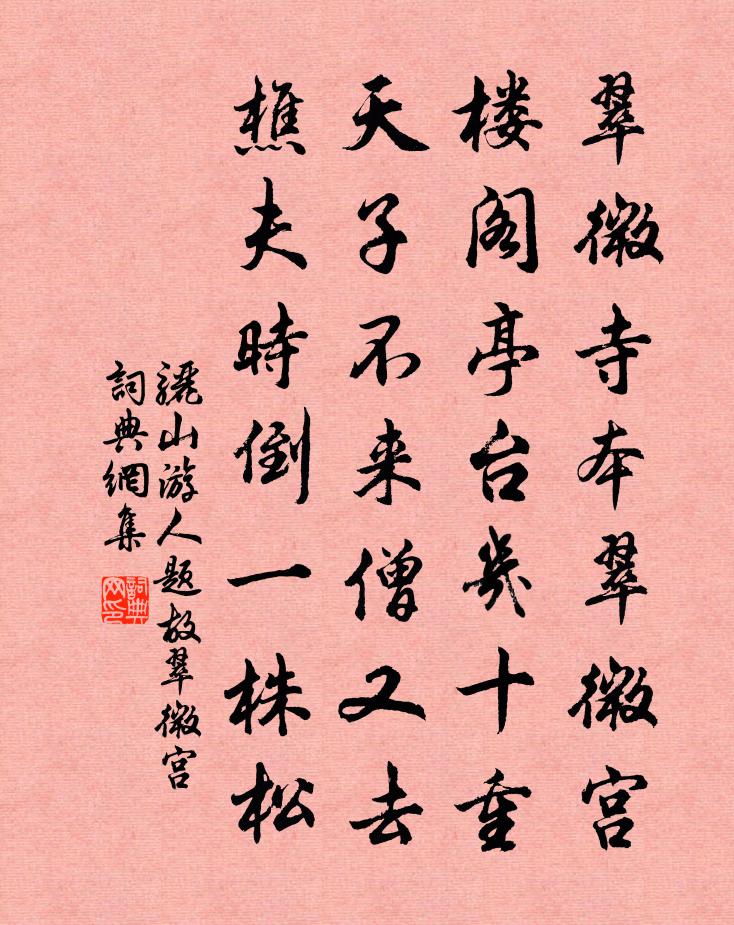 翠微寺本翠微宫
楼阁亭台几十重
天子不来僧又去
樵夫時倒一株松
骊山游人题故翠微宫
詞典網集
詞典网印